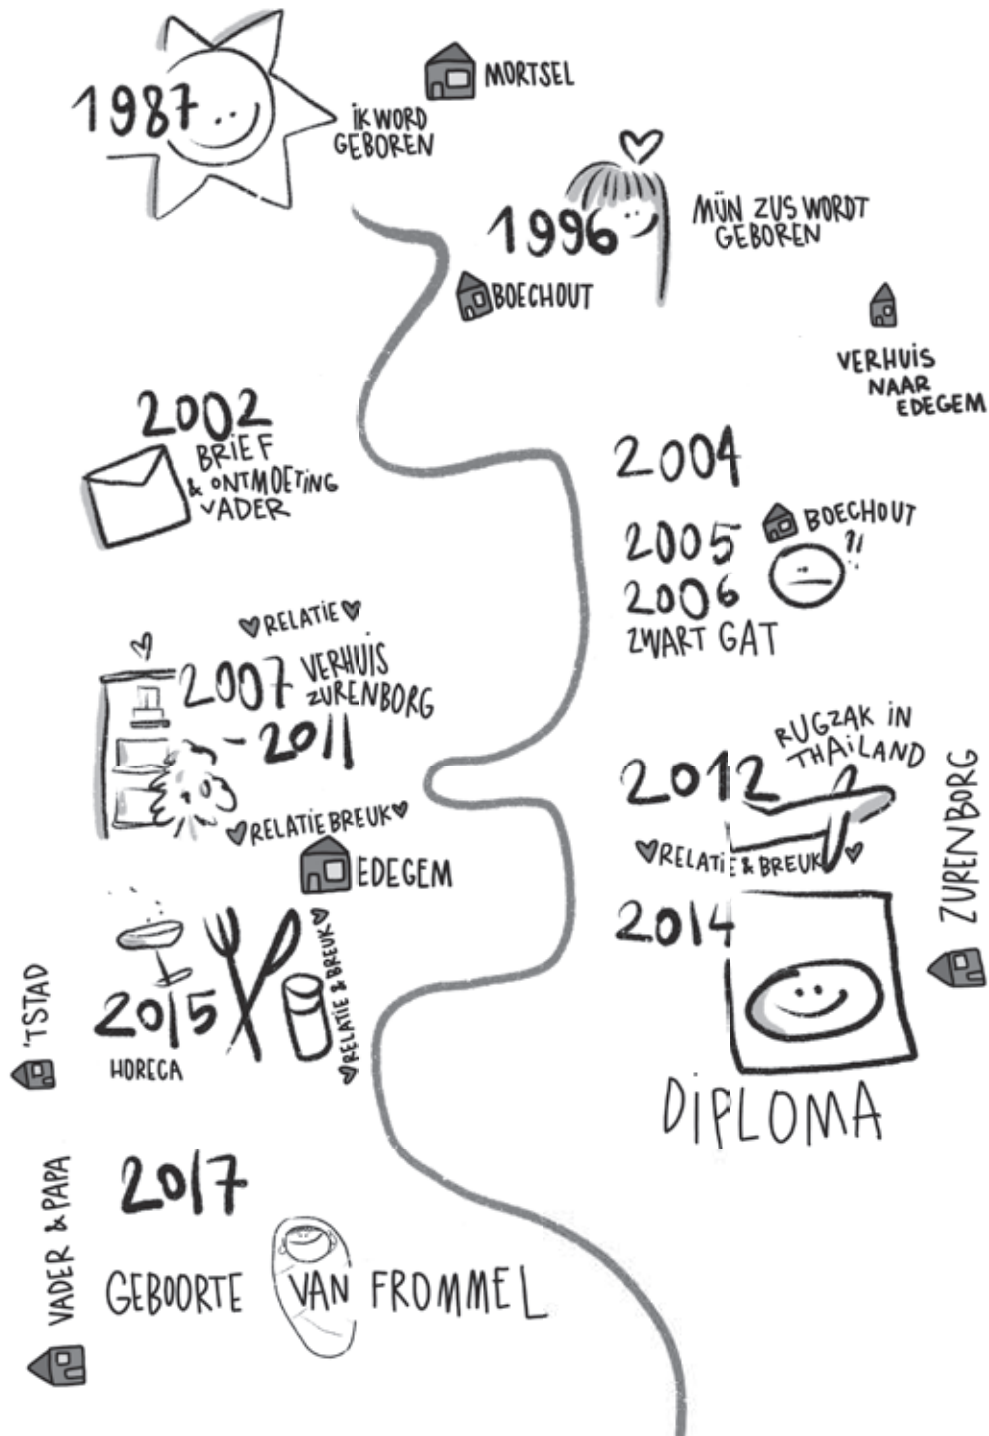 1987
MORTSEL
iK WORD
GEBOREN
1996
MÜN ZUS WORDT
GEBOREN
BOECHOUT
VERHUiS
NAAR
EDEGEM
2002
BRiEF
& ONTMOETiNG
VADER
2004
2005
BOECHOUT
?!
2006
ZWART GAT
RELATiE
2007 VERHUiS
ZURENBORG
- 2011
RELATiEBREUK
EDEGEM
RUGZAK iN
THAiLAND
2012
RELATiE & BREUK
ZURENBORG
2014
DiPLOMA
'TSTAD
2015
HORECA
RELATiE & BREUK
2017
VADER & PAPA
GEBOORTE VAN FROMMEL